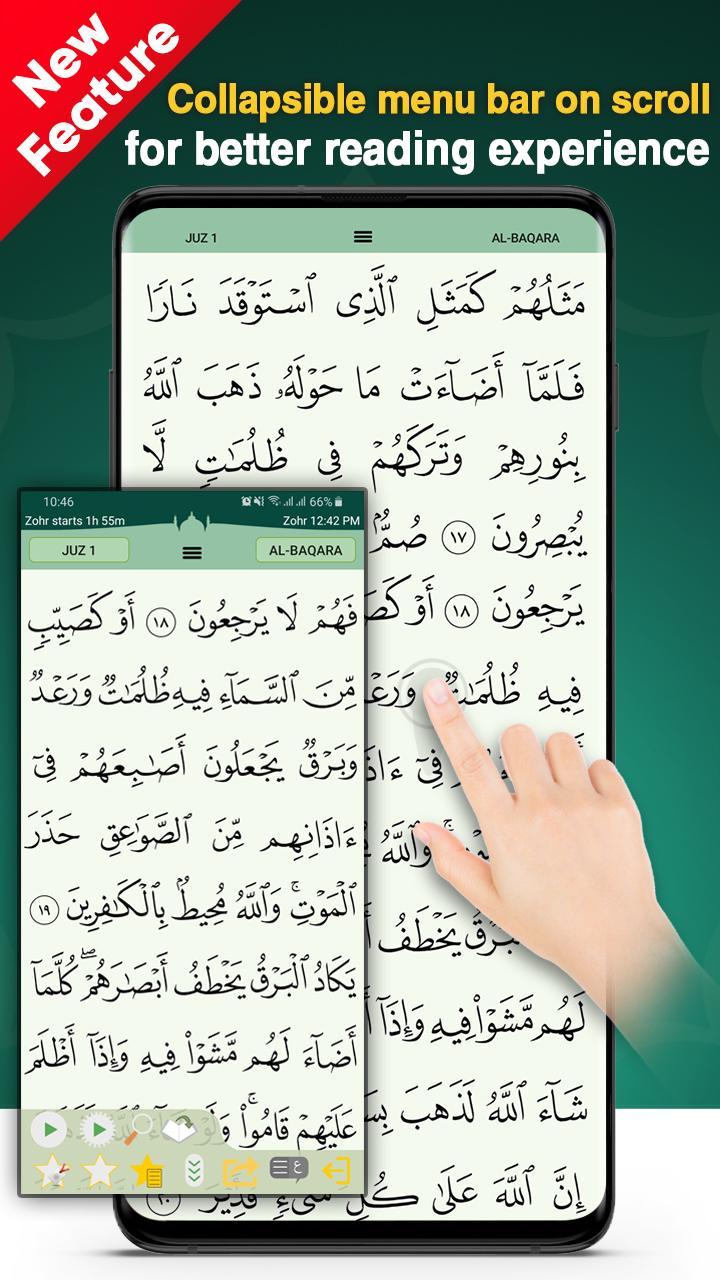 New
Feature
Collapsible menu bar on scroll
for better reading experience
JUZ 1
AL-BAQARA
مَثَلُهُمْ كَمَثَلِ ٱلَّذِى ٱسْتَوْقَدَ نَارًا
فَلَمَّآ أَضَآءَتْ مَا حَوْلَهُۥ ذَهَبَ ٱللَّهُ
بِنُورِهِمْ وَتَرَكَهُمْ فِى ظُلُمَٰتٍ لَّا
يُبْصِرُونَ ١٧ صُمٌّۢ
يَرْجِعُونَ ١٨ أَوْ كَصَ
فِيهِ ظُلُمَٰتٌ وَرَعْ
فِىٓ ءَاذَ
وَٱللَّهُ
ٱلْبَرْقُ يَخْطَفُ أَ
لَهُم مَّشَوْا۟ فِيهِ وَإِذَآ أَ
شَآءَ ٱللَّهُ لَذَهَبَ بِسَ
إِنَّ ٱللَّهَ عَلَىٰ كُلِّ شَىْءٍ قَدِيرٌ ٢٠
10:46
66%
Zohr starts 1h 55m
Zohr 12:42 PM
JUZ 1
AL-BAQARA
فَهُمْ لَا يَرْجِعُونَ ١٨ أَوْ كَصَيِّبٍ
مِّنَ ٱلسَّمَآءِ فِيهِ ظُلُمَٰتٌ وَرَعْدٌ
وَبَرْقٌ يَجْعَلُونَ أَصَٰبِعَهُمْ فِىٓ
ءَاذَانِهِم مِّنَ ٱلصَّوَٰعِقِ حَذَرَ
ٱلْمَوْتِ ۚ وَٱللَّهُ مُحِيطٌۢ بِٱلْكَٰفِرِينَ ١٩
يَكَادُ ٱلْبَرْقُ يَخْطَفُ أَبْصَٰرَهُمْ ۖ كُلَّمَآ
أَضَآءَ لَهُم مَّشَوْا۟ فِيهِ وَإِذَآ أَظْلَمَ
عَلَيْهِمْ قَامُوا۟ ۚ وَلَوْ شَآءَ ٱللَّهُ لَذَهَبَ